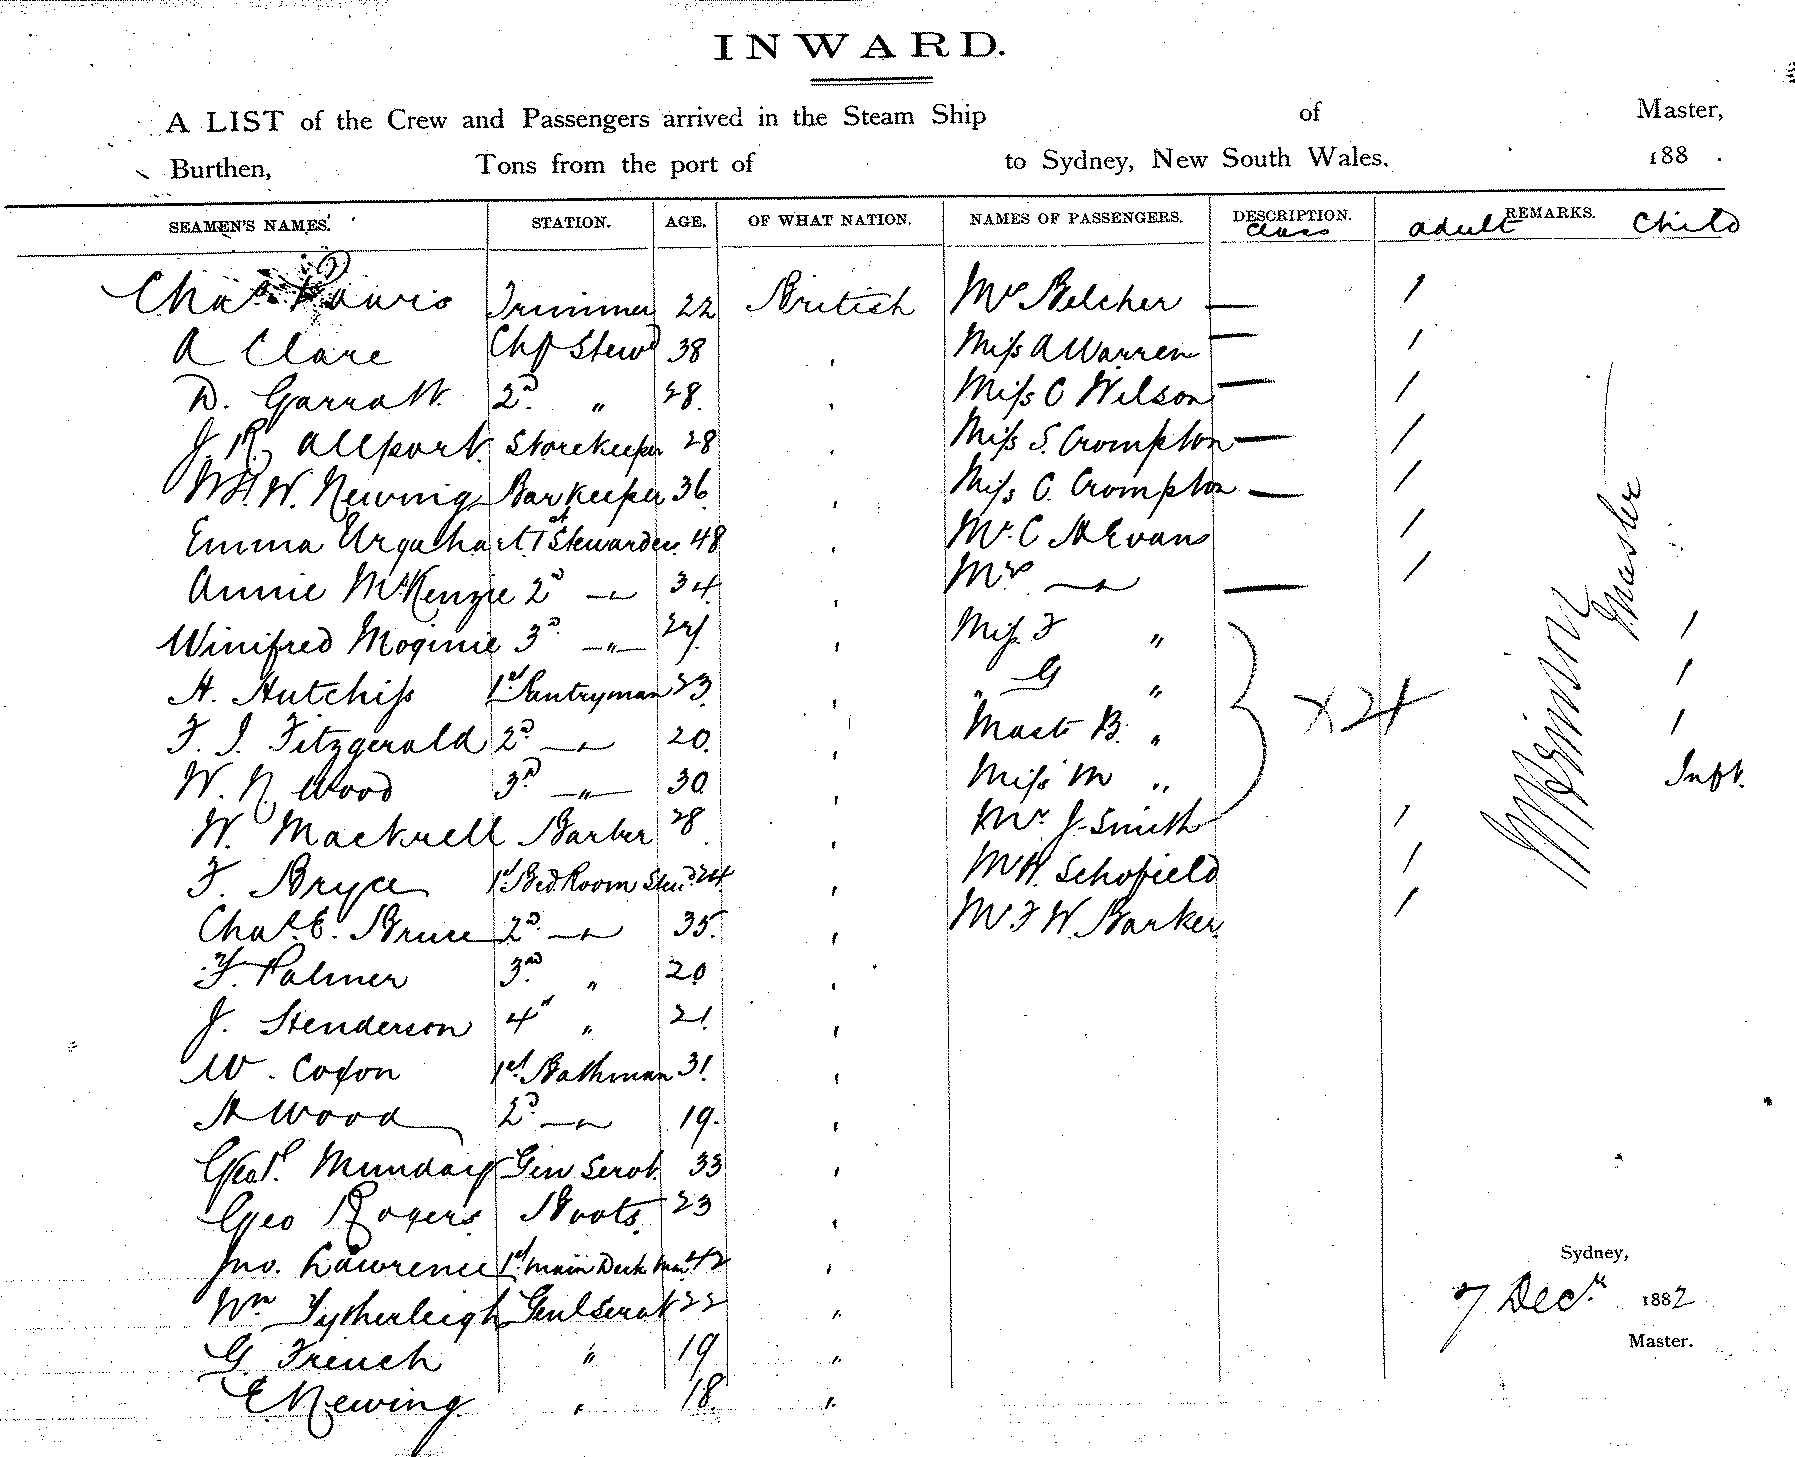 INWARD.
A LIST of the Crew and Passengers arrived in the Steam Ship of Master,
Burthen, Tons from the port of to Sydney, New South Wales. 188 .
SEAMEN'S NAMES. STATION. AGE. OF WHAT NATION. NAMES OF PASSENGERS. DESCRIPTION. REMARKS.
Class adult Child
Chas Davis Trimmer 22 British Mrs Belcher — /
A Clare Chf Stewd 38 Miss A Warren — /
D. Garratt 2d " 28. Miss C Wilson — /
J. R. Allport. Storekeeper 28 Miss S. Crompton — /
W. Newing Barkeeper 36 Miss C. Crompton — /
Emma Urquhart 1st Stewardess 48 Mr C H Evans /
Annie McKenzie 2d —"— 34. Mrs —"— — /
Winifred Moginie 3d —"— Miss F " /
H. Hutchiss 1st Pantryman 23. " G " /
F. J. Fitzgerald 2d —"— 20. Mast B. " /
W. N. Wood 3d —"— 30 Miss M " Inft.
W. Mackrell Barber 28 Mr J. Smith /
F. Bryce 1st Bed Room Stewd 24 Mr H. Schofield /
Chas E. Bruce 2d —"— 35. Mr F W. Barker /
F. Palmer 3rd " 20
J. Henderson 4th " 21.
W. Coxon 1st Bathman 31.
H Wood 2d —"— 19.
Munday Gen Servt. 33
Geo Rogers Boots. 23
Jno. Lawrence 1st Main Deck Man 42
Wm Tytherleigh Genl Servt 22 "
G. French " 19 "
E Newing. " 18. "
x 2 1
Master
Sydney,
7 Decr 1882
Master.